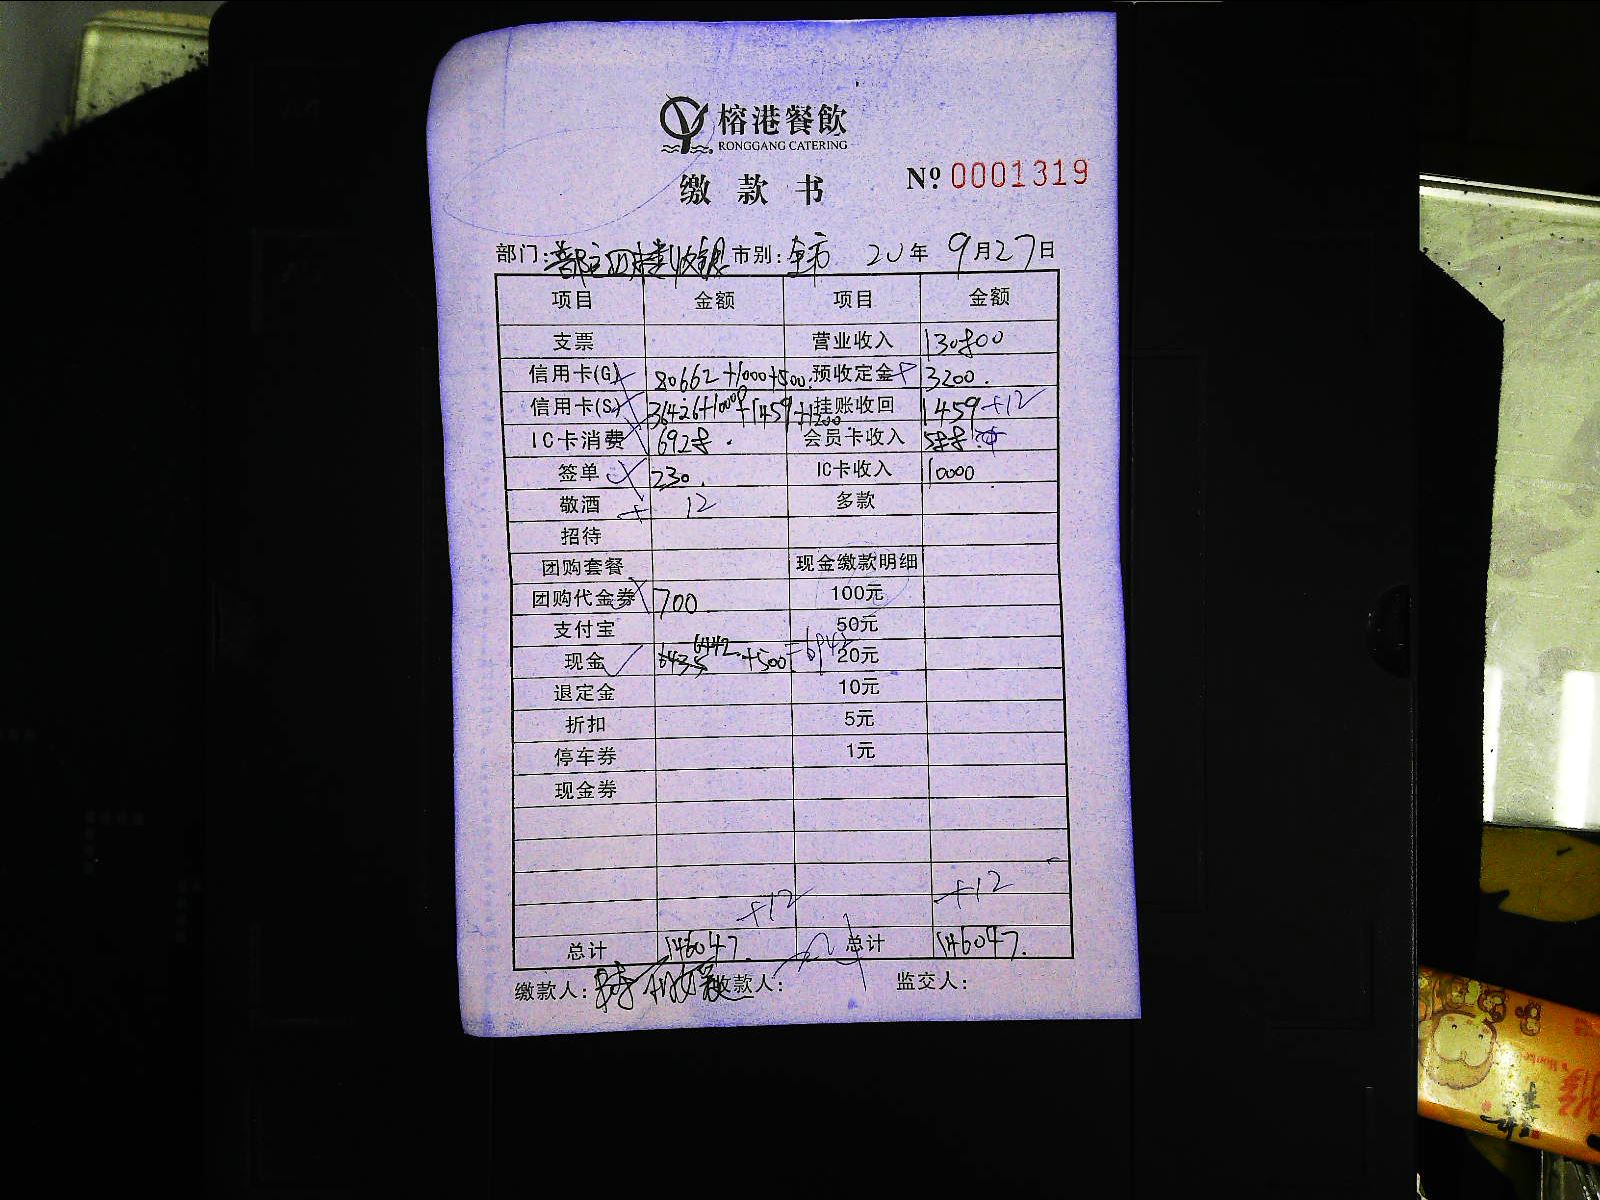 榕港餐飲
RONGGANG CATERING
缴款书 Nº 0001319
部门: 市别: 全市 20 年 9月27日
项目 金额 项目 金额
支票 营业收入 130800
信用卡(G) 80662+1000+500. 预收定金 3200.
信用卡(S) 36426+10000+1459+1200 挂账收回 1459+12
IC卡消费 6928. 会员卡收入 588.
签单 230. IC卡收入 10000
敬酒 + 12 多款
招待
团购套餐 现金缴款明细
团购代金券 700 100元
支付宝 50元
现金 6435 6442.+500=6942 20元
退定金 10元
折扣 5元
停车券 1元
现金券
+12 +12
总计 146047. 总计 146047.
缴款人: 收款人: 监交人: